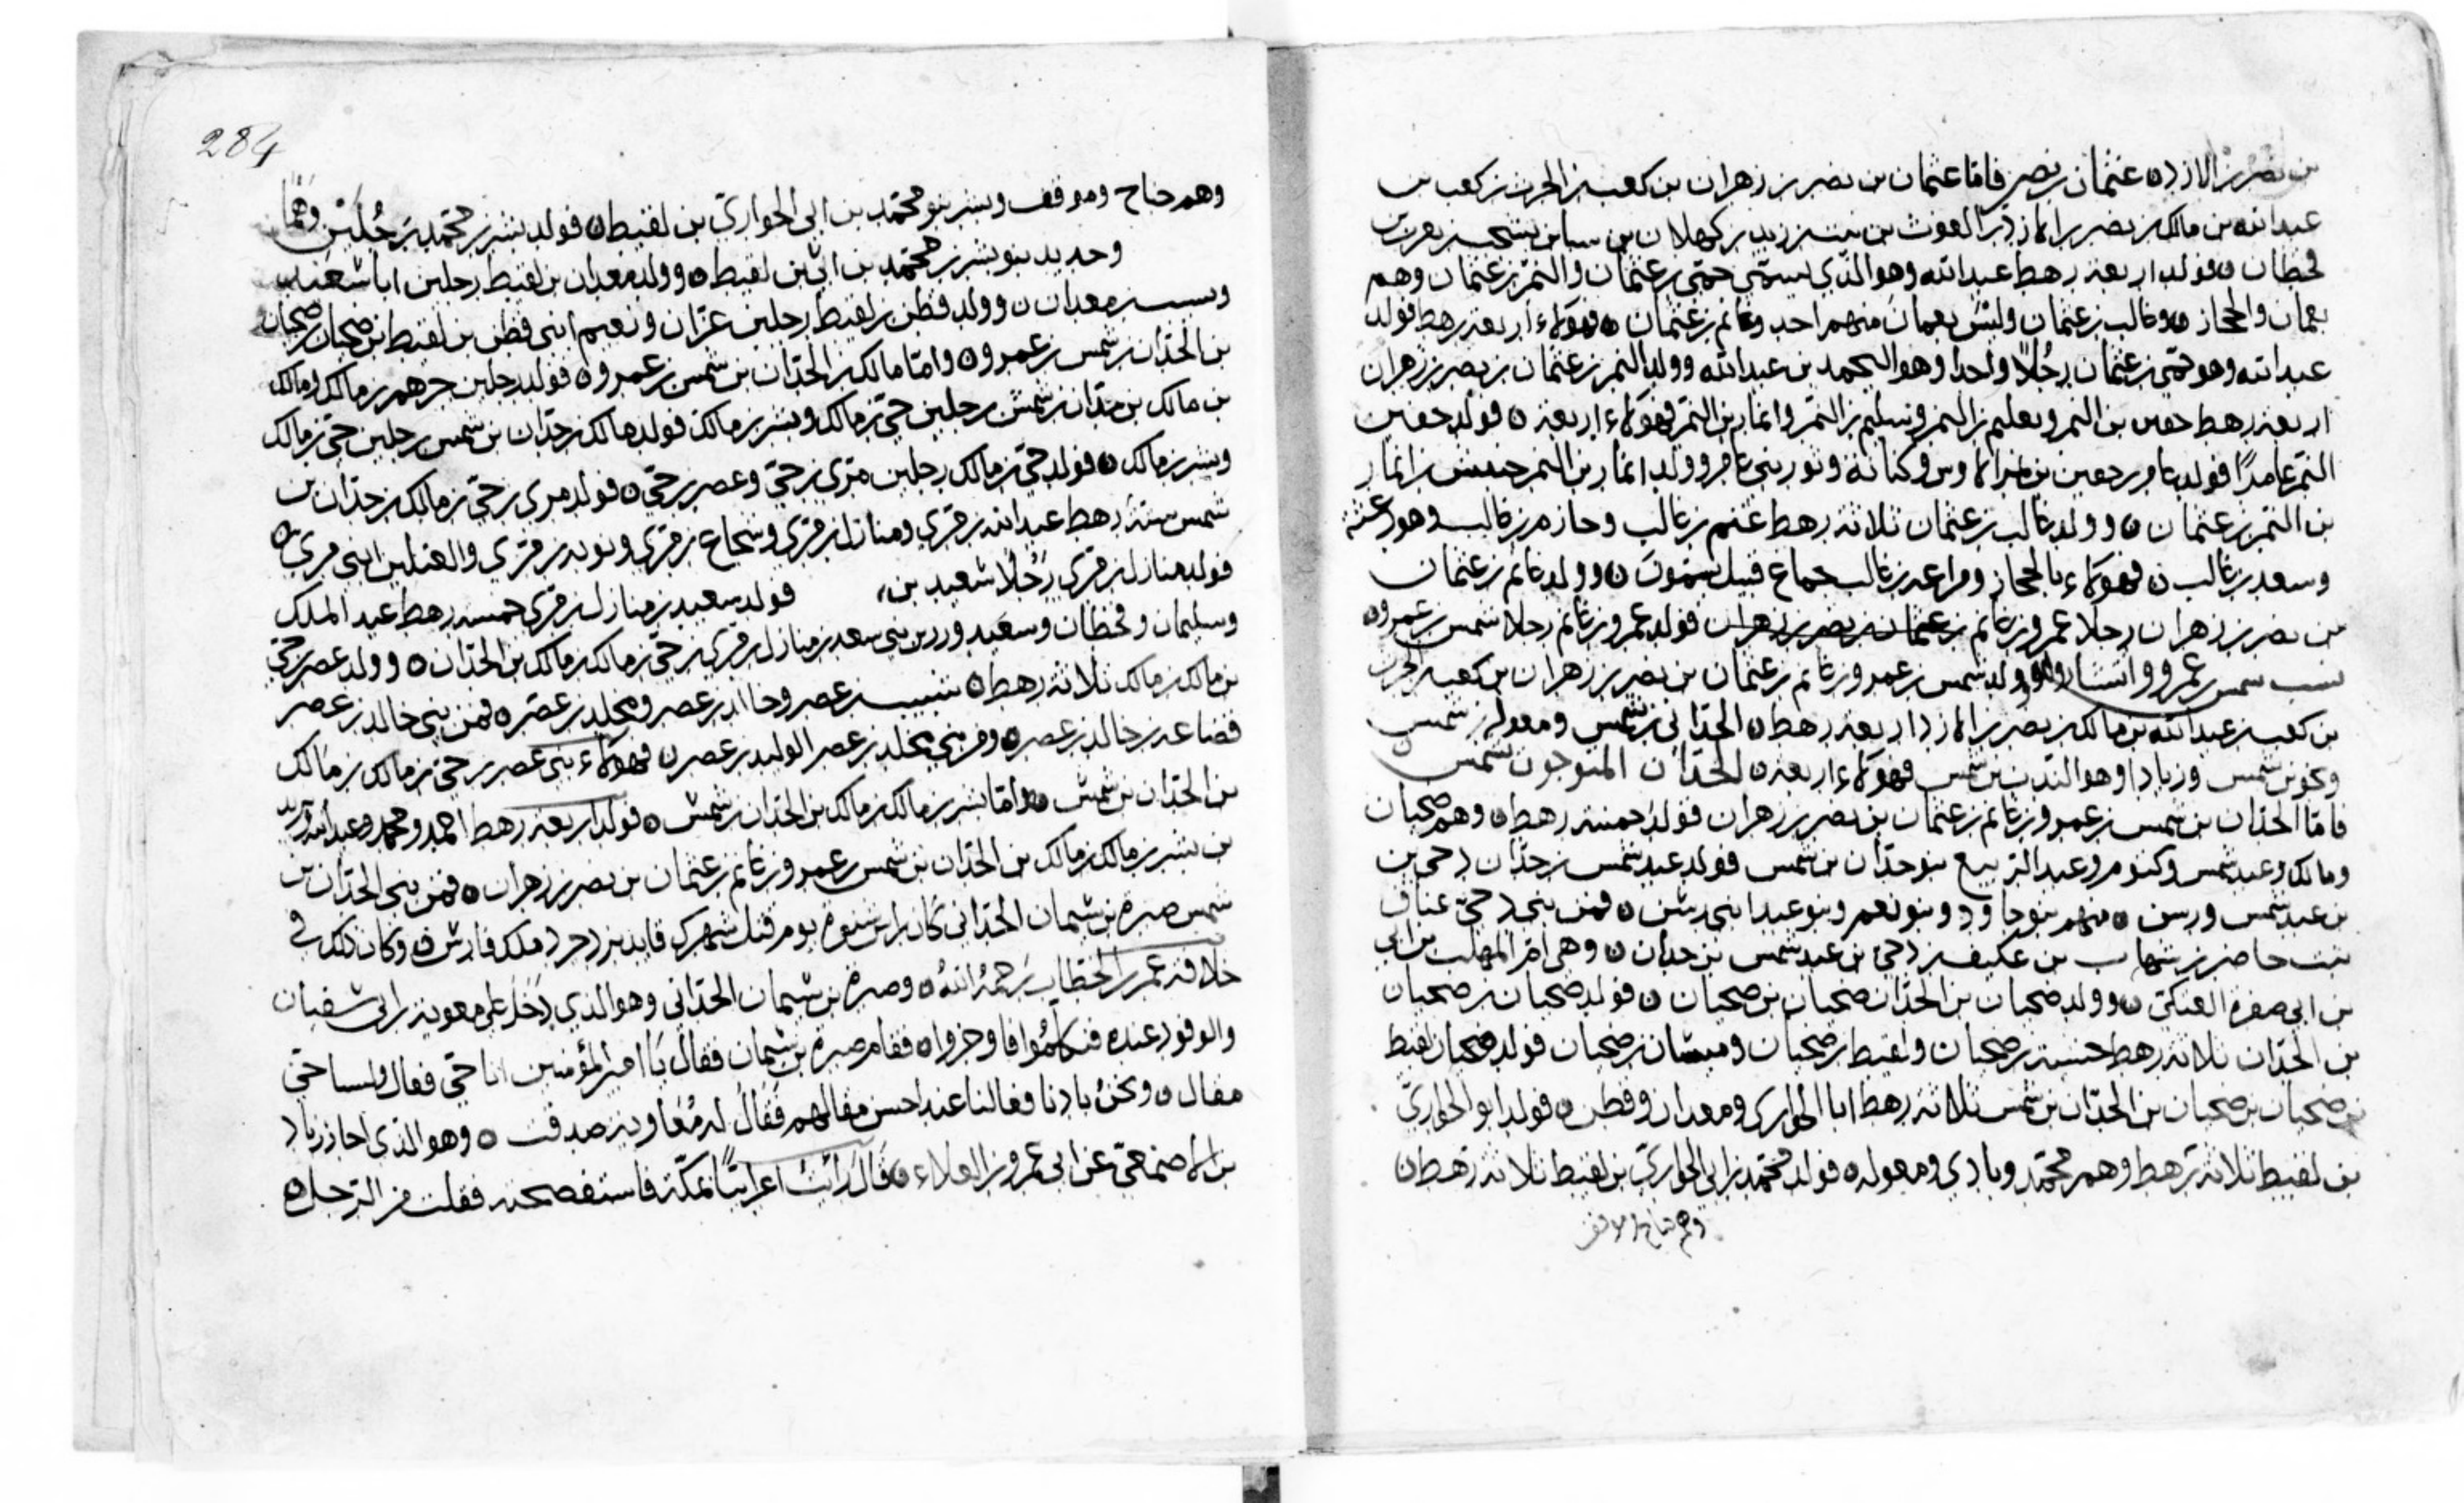 بن نصر بن الازد ه عثمان بن نصر فاما عثمان بن نصر بن زهران بن كعب بن الحرث بن كعب بن
عبد الله بن مالك بن نصر بن الازد بن الغوث بن نبت بن زيد بن كهلان بن سبا بن يشجب بن يعرب بن
قحطان ه فولد اربعة رهط عبد الله وهو الذي يسمى حمى بن عثمان والنمر بن عثمان وهم
بعمان والحجاز ه وغالب بن عثمان وليس بعمان منهم احد وغانم بن عثمان ه فهولاء اربعة رهط فولد
عبد الله وهو حمى بن عثمان رجلا واحدا وهو اليحمد بن عبد الله وولد النمر بن عثمان بن نصر بن زهران
اربعة رهط جعين بن النمر و بن النمر وسليم بن النمر وانمار بن النمر فهولاء اربعة ه فولد جعين
النمر عامرا فولد عامر بن جعين بن الاوس وكنانة وثور بني عامر وولد انمار بن النمر بن انمار
بن النمر بن عثمان ه وولد غالب بن عثمان ثلاثة رهط غنم بن غالب وحازم بن غالب وهو
وسعد بن غالب ه فهولاء بالحجاز جماع قبيل يسمون ه وولد غانم بن عثمان
بن نصر بن زهران رجلا عمرو بن غانم بن عثمان بن نصر بن زهران فولد عمرو بن غانم رجلا شمس بن عمرو ه
نسب شمس بن عمرو وانتشار ولده وولد شمس بن عمرو بن غانم بن عثمان بن نصر بن زهران بن كعب بن الحرث
بن كعب بن عبد الله بن مالك بن نصر بن الازد اربعة رهط ه الحداني بن شمس ومعولة بن شمس
ونحو بن شمس وزيادا وهو الندب بن شمس فهولاء اربعة ه الحدان المتوجون شمس ه
فاما الحدان بن شمس بن عمرو بن غانم بن عثمان بن نصر بن زهران فولد خمسة رهط ه وهم صحيان
ومالك وعبد شمس وكتوم وعبد الربيع بنو حدان بن شمس فولد عبد شمس بن حدان دحى بن
بن عبد شمس ورسن ه منهم بنو حاود وبنو نعم وبنو عبد ابني رسن ه فمن بني دحى عناق
بنت حاضر بن شهاب بن عكيف بن دحى بن عبد شمس بن حدان ه وهى ام المهلب بن ابي
بن ابي صفرة العتكى ه وولد صحيان بن الحدان صحيان بن صحيان ه فولد صحيان بن صحيان
بن الحدان ثلاثة رهط بن صحيان ولقيط بن صحيان بن صحيان فولد صحيان لقيط
بن صحيان بن صحيان بن الحدان بن شمس ثلاثة رهط ابا الحواري ومعدان وقطن ه فولد ابو الحواري
بن لقيط ثلاثة رهط وهم محمد وبادي ومعولة ه فولد محمد بن ابي الحواري بن لقيط ثلاثة رهط ه
وهم جناح وموقف
284
وهم جناح وموقف وبشر بنو محمد بن ابي الحواري بن لقيط ه فولد بشر بن محمد رجلين وهما
وحديد بنو بشر بن محمد بن ابي بن لقيط ه وولد معدان بن لقيط رجلين ابا شعيب
بن معدان ه وولد قطن بن لقيط رجلين عزان ونعيم ابني قطن بن لقيط بن صحيان بن صحيان
بن الحدان بن شمس بن عمرو ه واما مالك بن الحدان بن شمس بن عمرو ه فولد رجلين جرهم بن مالك ومالك
بن مالك بن حدان بن شمس رجلين حي بن مالك وبشر بن مالك فولد مالك بن حدان بن شمس رجلين حي بن مالك
وبشر بن مالك ه فولد حي بن مالك رجلين مري بن حي وعصر بن حي ه فولد مري بن حي بن مالك بن حدان بن
شمس ستة رهط عبد الله بن مري ومنازل بن مري وشجاع بن مري وتوبه بن مري ابني مري ه
فولد منازل بن مري رجلا سعيد بن، فولد سعيد بن منازل بن مري خمسة رهط عبد الملك
وسليمان وقحطان وسعيد بني سعد بن منازل بن مري بن حي بن مالك بن مالك بن الحدان ه وولد عصر بن حي
بن مالك بن مالك ثلاثة رهط ه شبيب بن عصر وخالد بن عصر ومخلد بن عصر ه فمن بني خالد بن عصر
قضاعة بن خالد بن عصر ه ومن بني مخلد بن عصر الوليد بن عصر ه فهولاء بني عصر بن حي بن مالك بن مالك
بن الحدان بن شمس ه واما بشر بن مالك بن مالك بن الحدان بن شمس ه فولد اربعة رهط احمد ومحمد وعبد الله
بن بشر بن مالك بن مالك بن الحدان بن شمس بن عمرو بن غانم بن عثمان بن نصر بن زهران ه فمن بني الحدان بن
شمس صبرة بن شيمان الحداني كان راس شنوة يوم قتل شهرك قايد يزدجرد ملك فارس ه وكان ذلك في
خلافة عمر بن الخطاب رحمه الله ه وصبرة بن شيمان الحداني وهو الذي دخل على معوية بن ابي سفيان
والوفود عنده فتكلموا فاوجزوا ه فقام صبرة بن شيمان فقال يا امير المؤمنين انا حي فعال ولسنا حي
مقال ه ونحن بادنا فعالنا عند احسن مقالهم فقال له معاوية صدقت ه وهو الذي اجار زياد
بن الاصمعي عن ابي عمرو بن العلاء ه قال رايت اعرابيا بمكة فاستفصحته فقلت من الرجل ه